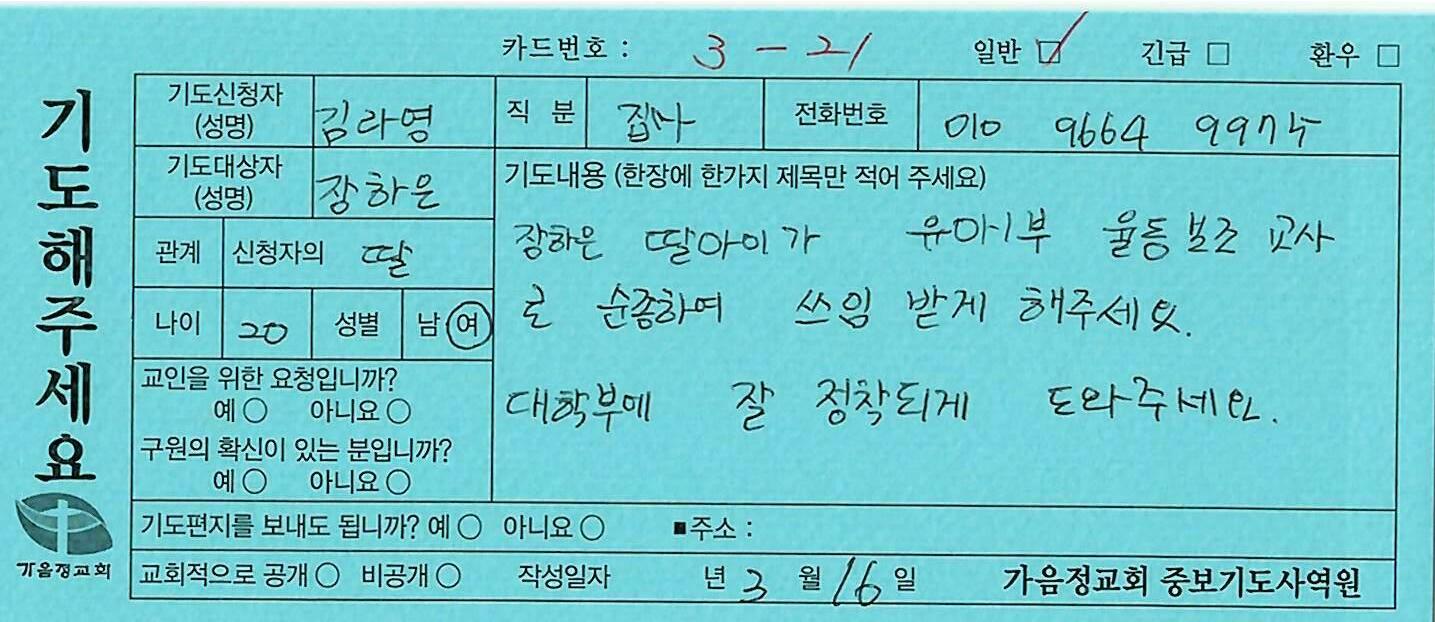 카드번호 : 3 - 21 일반 긴급 환우
기도해주세요
기도신청자 (성명) 김라영 직 분 집사 전화번호 010 9664 9975
기도대상자 (성명) 장하은
관계 신청자의 딸
나이 20 성별 남 여
교인을 위한 요청입니까?
예 아니요
구원의 확신이 있는 분입니까?
예 아니요
기도내용 (한장에 한가지 제목만 적어 주세요)
장하은 딸아이가 유아부 율동 보조 교사
로 순종하여 쓰임 받게 해주세요.
대학부에 잘 정착되게 도와주세요.
기도편지를 보내도 됩니까? 예 아니요 ■주소 :
교회적으로 공개 비공개 작성일자 년 3 월 16 일 가음정교회 중보기도사역원
가음정교회